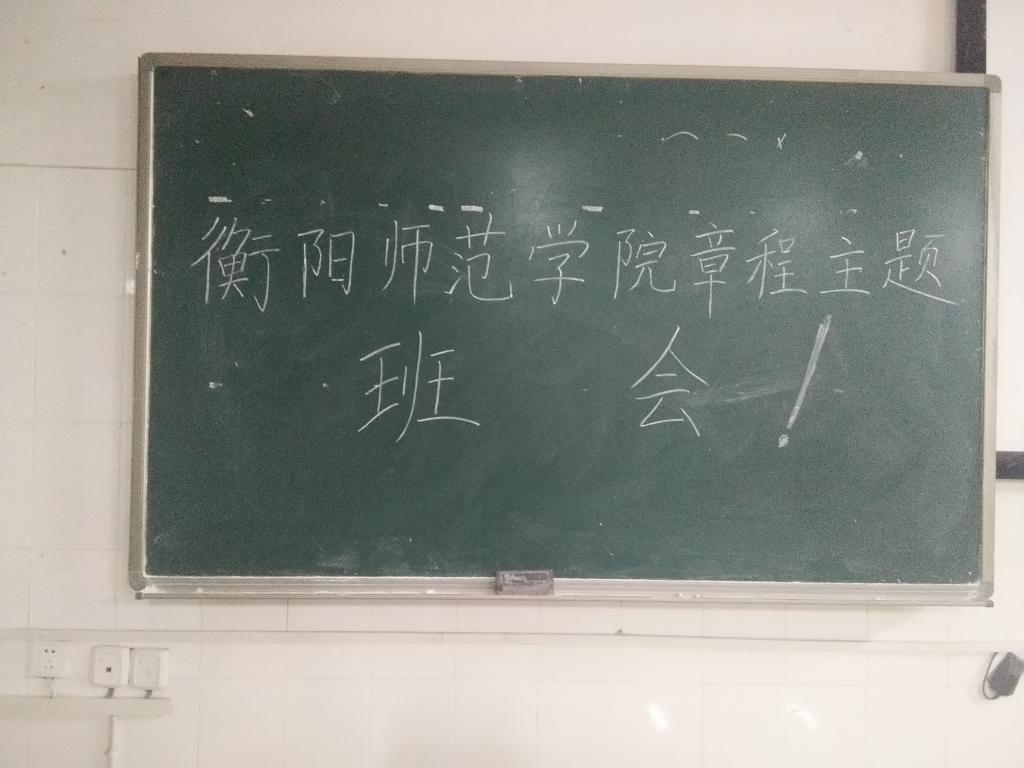 衡阳师范学院章程主题
班会!